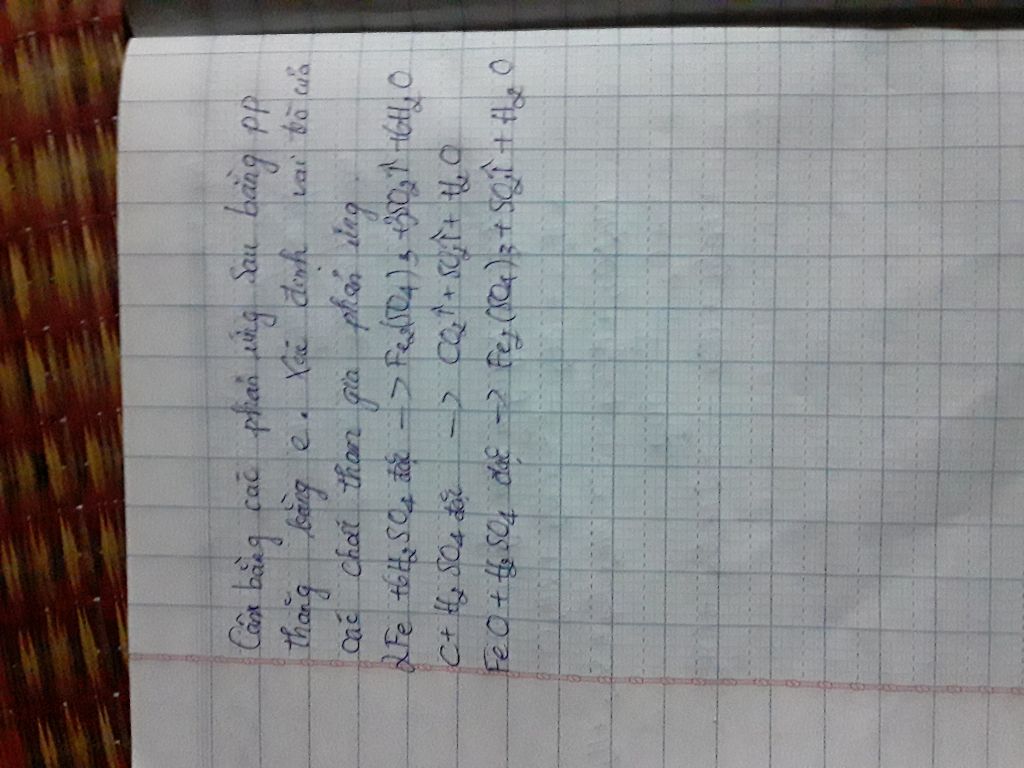 Cân bằng các phản ứng sau bằng pp
thăng bằng e. Xác định vai trò của
các chất tham gia phản ứng
2Fe + 6H₂SO₄ đặc -> Fe₂(SO₄)₃ + 3SO₂↑ + 6H₂O
C + H₂SO₄ đặc -> CO₂↑ + SO₂↑ + H₂O
FeO + H₂SO₄ đặc -> Fe₂(SO₄)₃ + SO₂↑ + H₂O